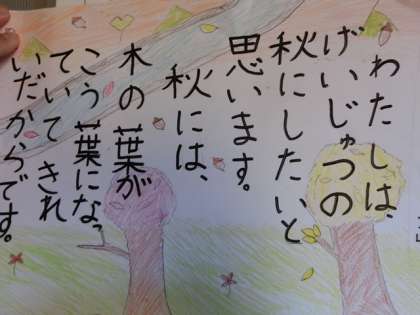 わたしは、
げいじゅつの
秋にしたいと
思います。
秋には、
木の葉が
こう葉になっ
ていてきれ
いだからです。